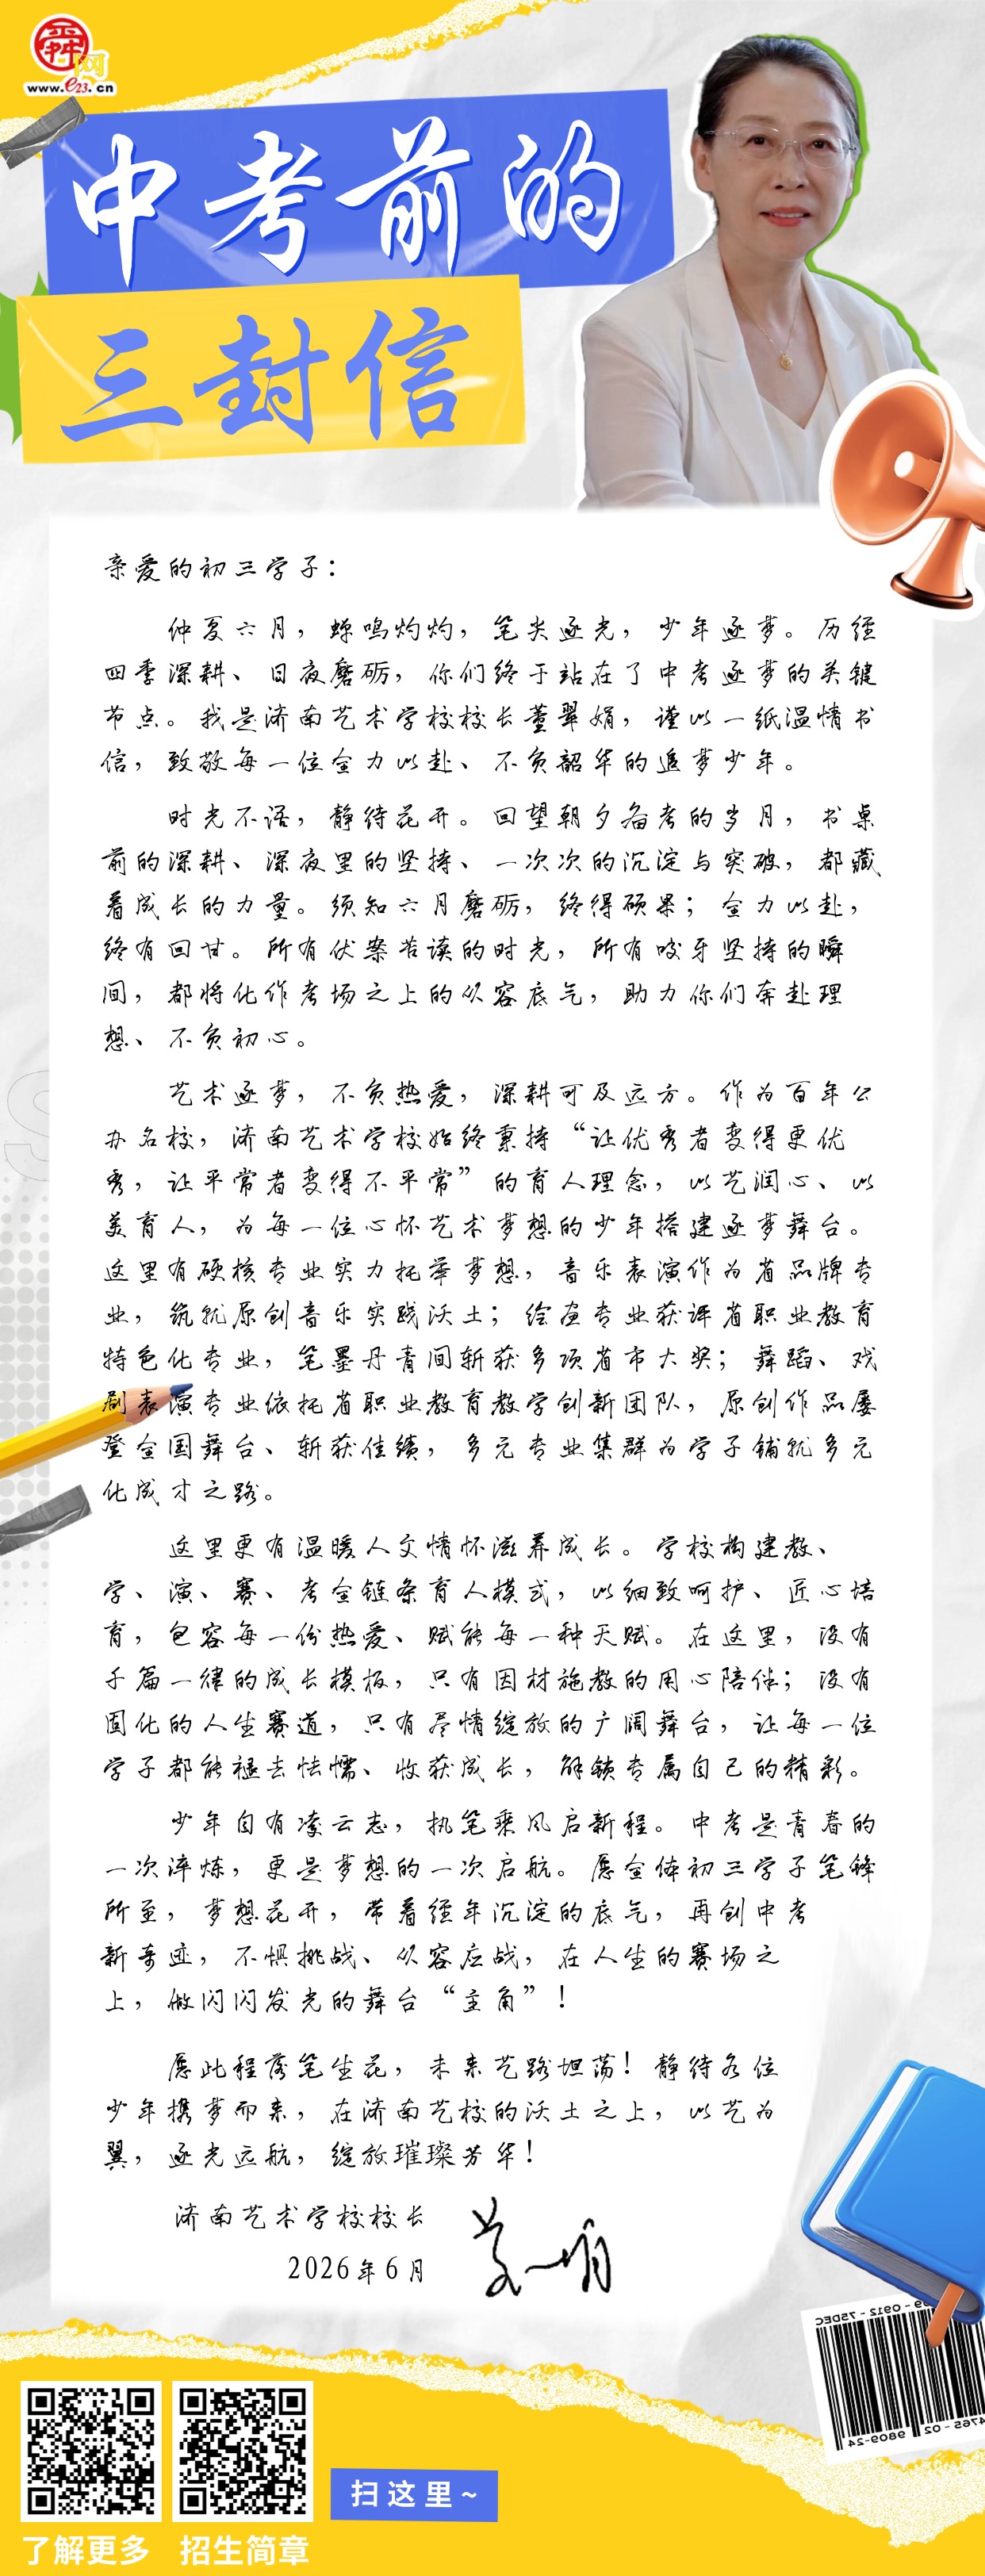 舜网
www.e23.cn
中考前的
三封信
亲爱的初三学子：
仲夏六月，蝉鸣灼灼，笔尖逐光，少年逐梦。历经
四季深耕、日夜磨砺，你们终于站在了中考逐梦的关键
节点。我是济南艺术学校校长董翠娟，谨以一纸温情书
信，致敬每一位全力以赴、不负韶华的追梦少年。
时光不语，静待花开。回望朝夕备考的岁月，书桌
前的深耕、深夜里的坚持、一次次的沉淀与突破，都藏
着成长的力量。须知六月磨砺，终得硕果；全力以赴，
终有回甘。所有伏案苦读的时光，所有咬牙坚持的瞬
间，都将化作考场之上的从容底气，助力你们奔赴理
想、不负初心。
艺术逐梦，不负热爱，深耕可及远方。作为百年公
办名校，济南艺术学校始终秉持“让优秀者变得更优
秀，让平常者变得不平常”的育人理念，以艺润心、以
美育人，为每一位心怀艺术梦想的少年搭建逐梦舞台。
这里有硬核专业实力托举梦想，音乐表演作为省品牌专
业，筑就原创音乐实践沃土；绘画专业获评省职业教育
特色化专业，笔墨丹青间斩获多项省市大奖；舞蹈、戏
剧表演专业依托省职业教育教学创新团队，原创作品屡
登全国舞台、斩获佳绩，多元专业集群为学子铺就多元
化成才之路。
这里更有温暖人文情怀滋养成长。学校构建教、
学、演、赛、考全链条育人模式，以细致呵护、匠心培
育，包容每一份热爱、赋能每一种天赋。在这里，没有
千篇一律的成长模板，只有因材施教的用心陪伴；没有
固化的人生赛道，只有尽情绽放的广阔舞台，让每一位
学子都能褪去怯懦、收获成长，解锁专属自己的精彩。
少年自有凌云志，执笔乘风启新程。中考是青春的
一次淬炼，更是梦想的一次启航。愿全体初三学子笔锋
所至，梦想花开，带着经年沉淀的底气，再创中考
新奇迹，不惧挑战、从容应战，在人生的赛场之
上，做闪闪发光的舞台“主角”！
愿此程落笔生花，未来艺路坦荡！静待各位
少年携梦而来，在济南艺校的沃土之上，以艺为
翼，逐光远航，绽放璀璨芳华！
济南艺术学校校长
2026年6月
扫这里~
了解更多 招生简章